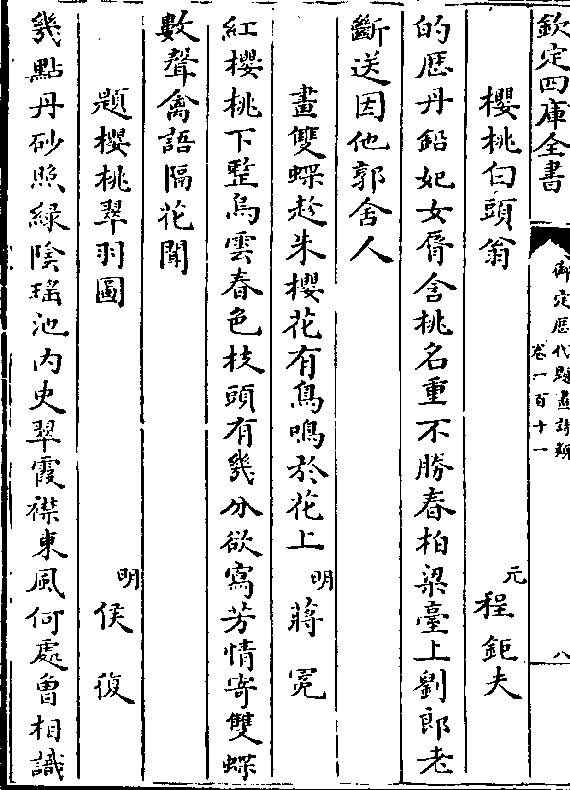 欽定四庫全書
御定歷代題畫詩類
卷一百十一
八
櫻桃白頭翁
元
程鉅夫
的歷丹鉛妃女脣含桃名重不勝春柏梁臺上劉郎老
斷送因他郭舍人
畫雙蝶趁朱櫻花有鳥鳴於花上
明
蔣冕
紅櫻桃下整烏雲春色枝頭有幾分欲寫芳情寄雙蝶
數聲禽語隔花聞
題櫻桃翠羽圖
明
侯復
幾點丹砂照綠陰瑤池內史翠霞襟東風何處曾相識